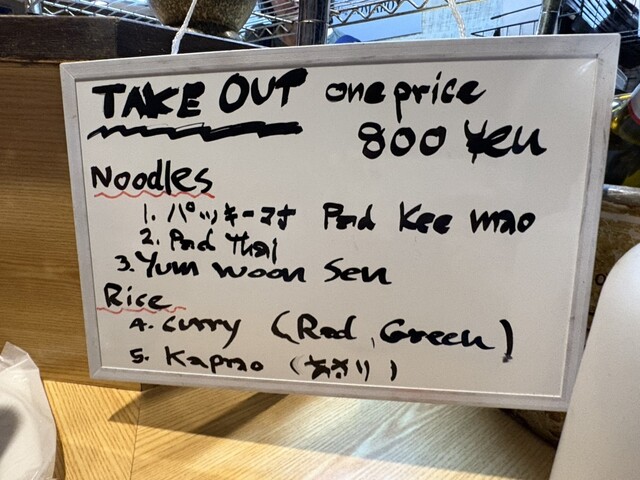 TAKE OUT one price
800 Yen
Noodles
1. パッキーマオ Pad Kee mao
2. Pad Thai
3. Yum woon Sen
Rice
4. Curry (Red, Green)
5. Kaprao